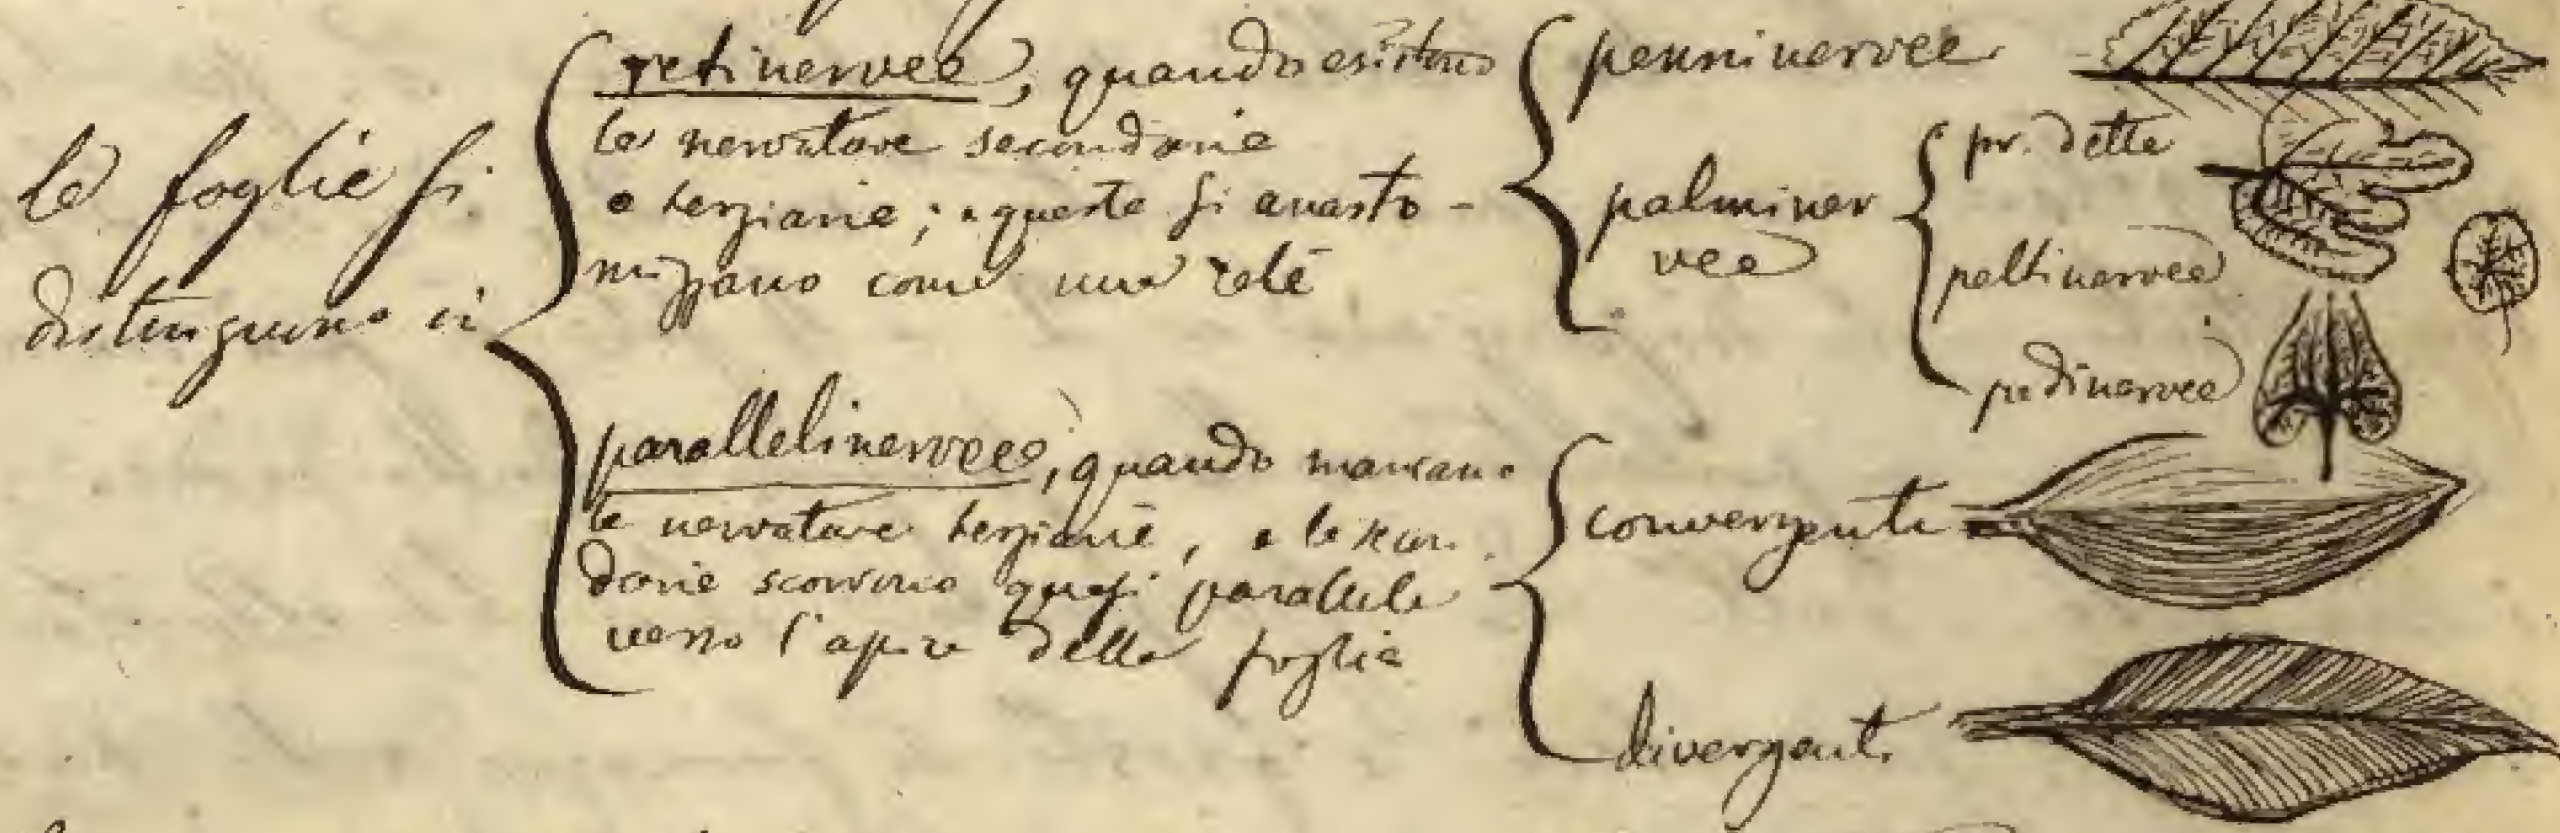 le foglie si
distinguono in
retinervee, quando esistono
le nervature secondarie
e terziarie; e queste si anasto-
mizzano come una rete
penninervee
palminer
vee
pr. dette
peltinervee
pedinervee
parallelinervee, quando mancano
le nervature terziarie, e le secon
darie scorrono quasi parallele
verso l'apice della foglia
convergenti
divergenti